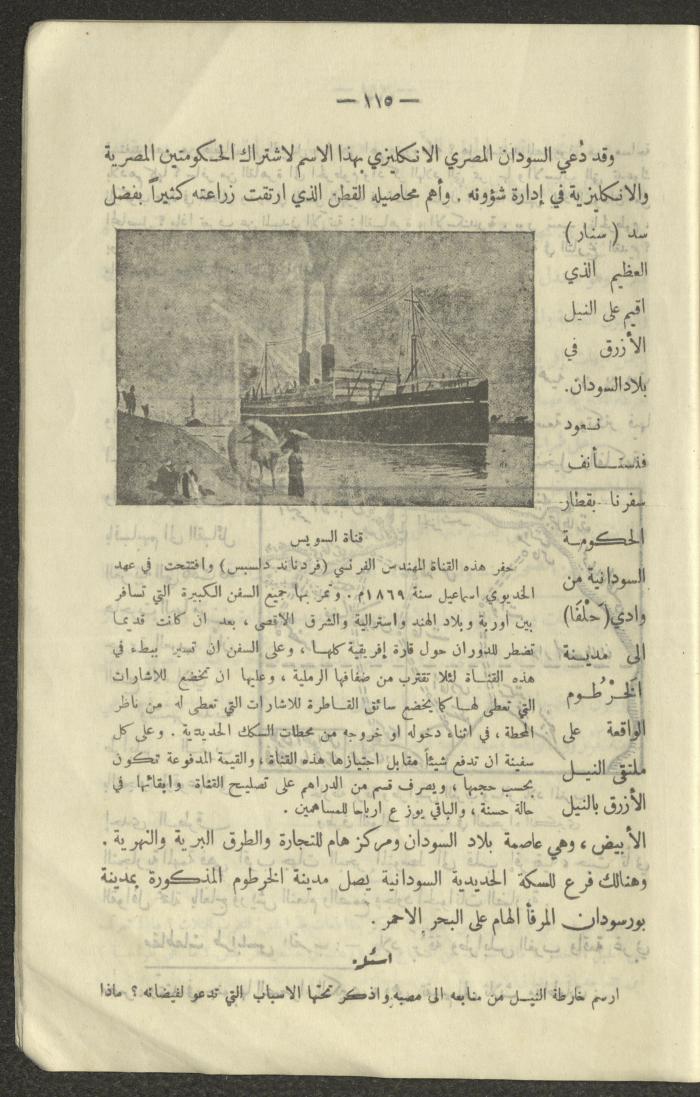 — ١١٥ —
وقد دُعي السودان المصري الانكليزي بهذا الاسم لاشتراك الحكومتين المصرية
والانكليزية في إدارة شؤونه . وأهم محاصيله القطن الذي ارتقت زراعته كثيراً بفضل
سد ( سنار )
العظيم الذي
اقيم على النيل
الأزرق في
بلاد السودان.
نعود
فنستأنف
سفرنا بقطار
الحكومة
السودانية من
وادي (حَلْفَا)
الى مدينة
الخَرْطُوم
الواقعة على
ملتقى النيل
الأزرق بالنيل
قناة السويس
حفر هذه القناة المهندس الفرنسي (فردناند دلسبس) وافتتحت في عهد
الخديوي اسماعيل سنة ١٨٦٩م . وتمر بها جميع السفن الكبيرة التي تسافر
بين أوربة وبلاد الهند واسترالية والشرق الاقصى ، بعد ان كانت قديما
تضطر للدوران حول قارة إفريقية كلها ، وعلى السفن ان تسير ببطء في
هذه القناة لئلا تقترب من ضفافها الرملية ، وعليها ان تخضع للاشارات
التي تعطى لها كما يخضع سائق القاطرة للاشارات التي تعطى له من ناظر
المحطة ، في اثناء دخوله او خروجه من محطات السكك الحديدية . وعلى كل
سفينة ان تدفع شيئاً مقابل اجتيازها هذه القناة ، والقيمة المدفوعة تكون
بحسب حجمها ، ويصرف قسم من الدراهم على تصليح القناة وابقائها في
حالة حسنة ، والباقي يوزع ارباحا للمساهمين .
الأبيض ، وهي عاصمة بلاد السودان ومركز هام للتجارة والطرق البرية والنهرية .
وهنالك فرع للسكة الحديدية السودانية يصل مدينة الخرطوم المذكورة بمدينة
بورسودان المرفأ الهام على البحر الاحمر .
اسئلة
ارسم خارطة النيل من منابعه الى مصبه واذكر تحتها الاسباب التي تدعو لفيضانه ؟ ماذا